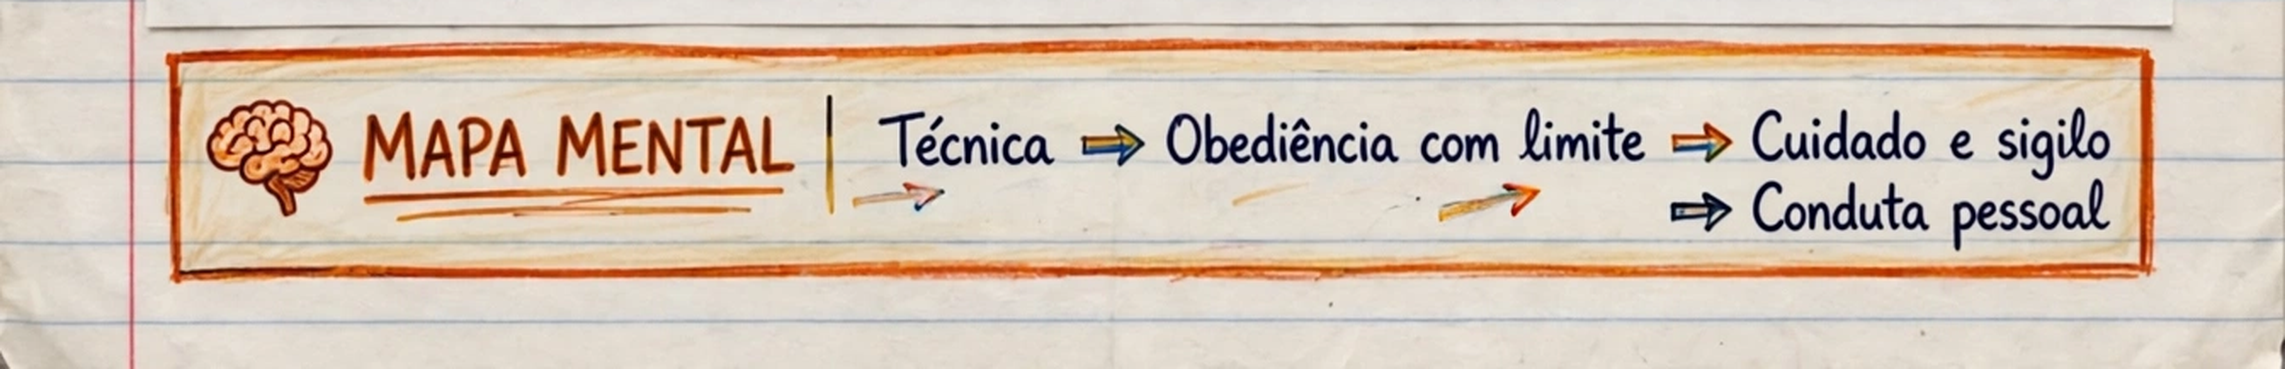 MAPA MENTAL
Técnica ⇒ Obediência com limite ⇒ Cuidado e sigilo
⇒ Conduta pessoal